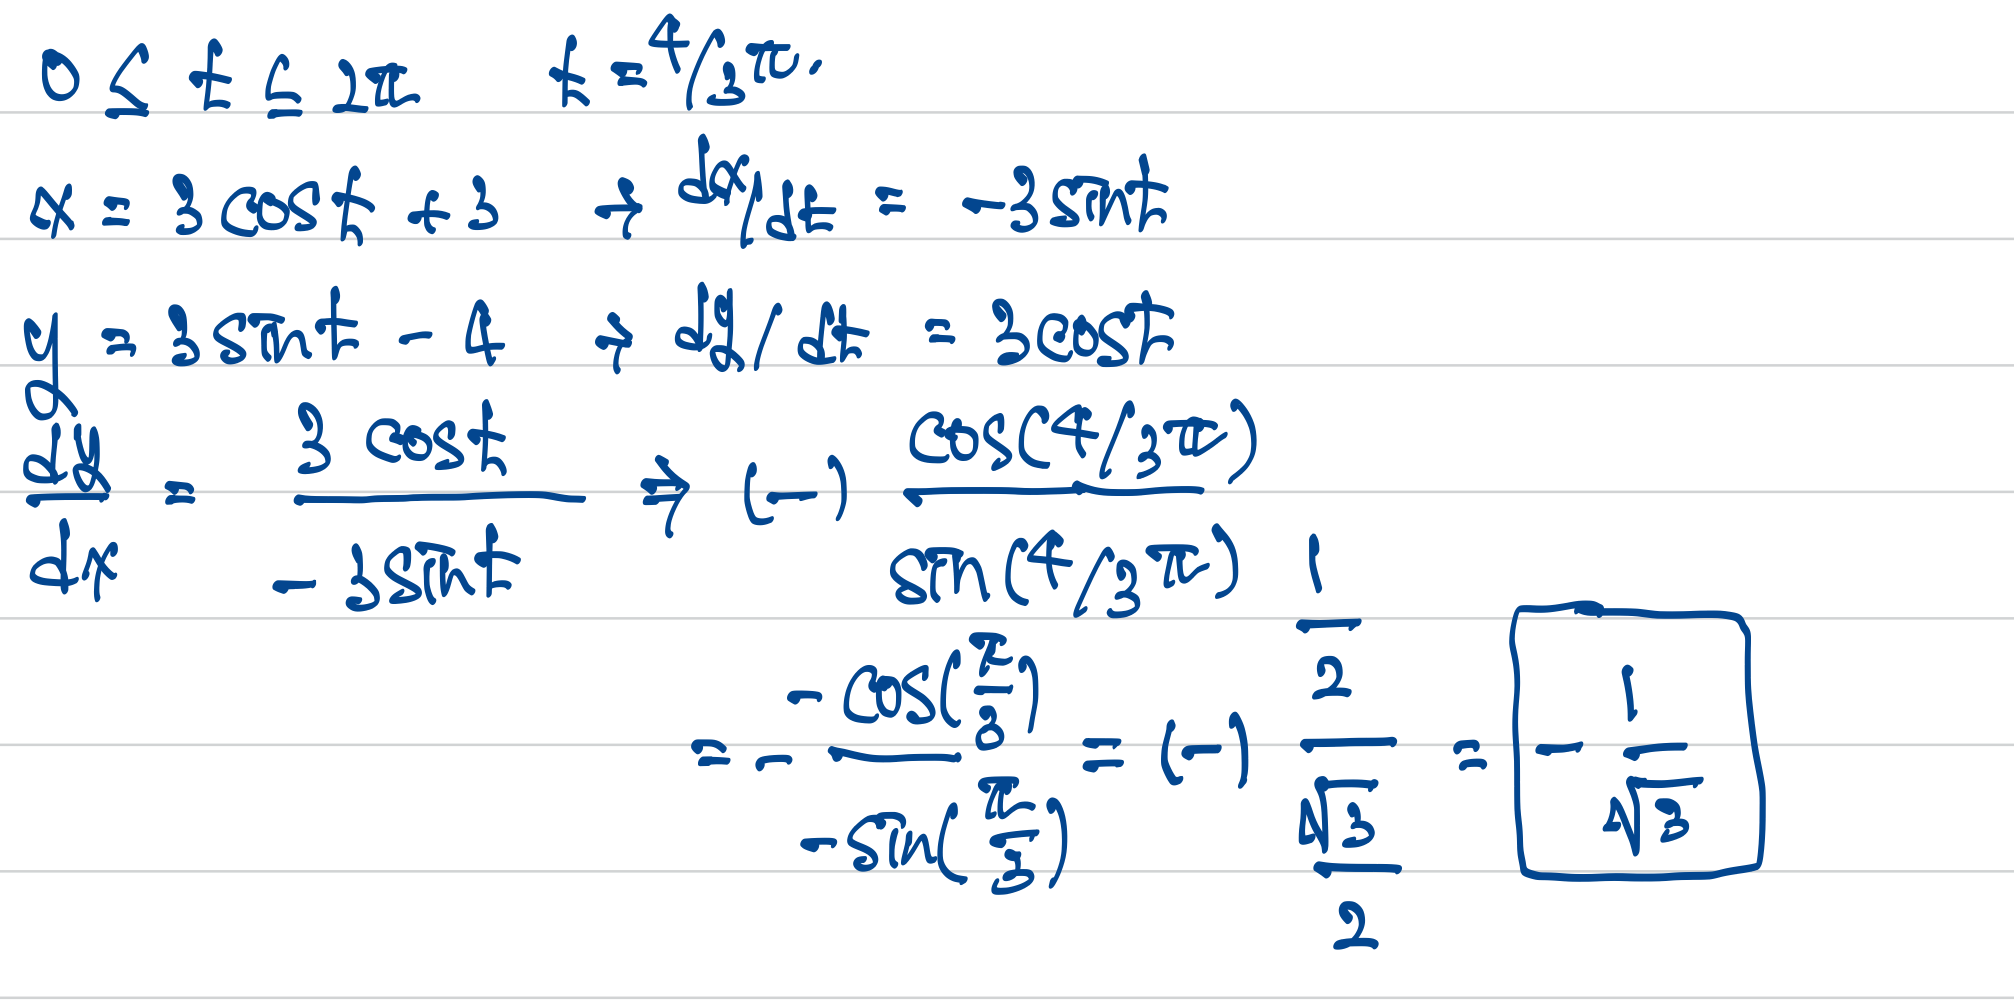 0 ≤ t ≤ 2π   t = 4/3 π.
x = 3 cost + 3 → dx/dt = -3 sint
y = 3 sint - 4 → dy/dt = 3cost
dy/dx = 3 cost / -3 sint ⇒ (-) cos(4/3 π) / sin(4/3 π)
= - -cos(π/3) / -sin(π/3) = (-) (1/2) / (√3/2) = -1/√3